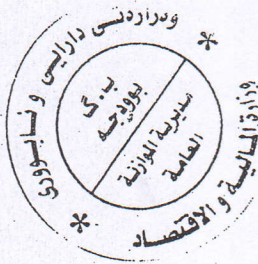 وەزارەتی دارایی و ئابووری
ب. گ
بوودجە
مديرية الموازنة
العامة
وزارة المالية و الاقتصاد